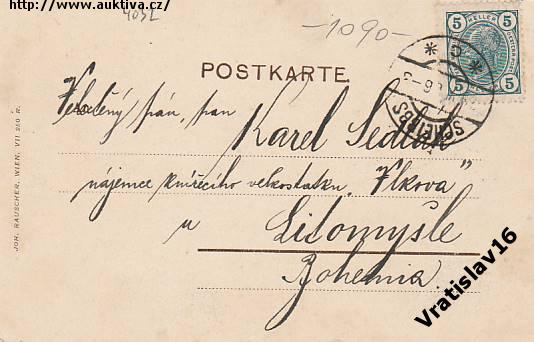 http://www.auktiva.cz/
-1090-
5 HELLER 5
5 5
POSTKARTE
SCHEIBBS
Velectěný pán, pan
Karel Sedlák
nájemce knížecího velkostatku "Vlkova"
u
Litomyšle
Bohemia.
JOH. RAUSCHER, WIEN, VII 250 R.
Vratislav16